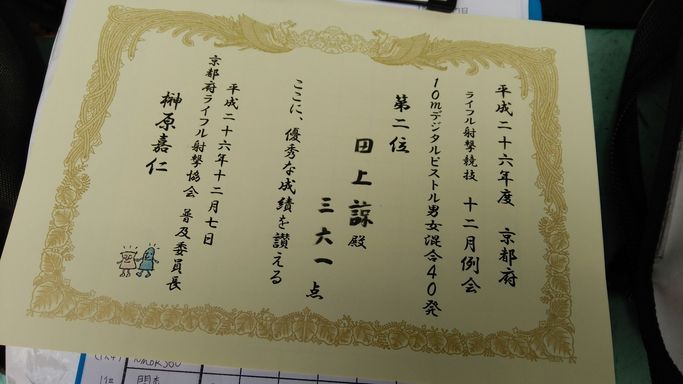 平成二十六年度　京都府
ライフル射撃競技　十二月例会
10mデジタルピストル男女混合40発
第二位
田上諒殿
三六一点
ここに、優秀な成績を讃える
平成二十六年十二月七日
京都府ライフル射撃協会　普及委員長
榊原嘉仁